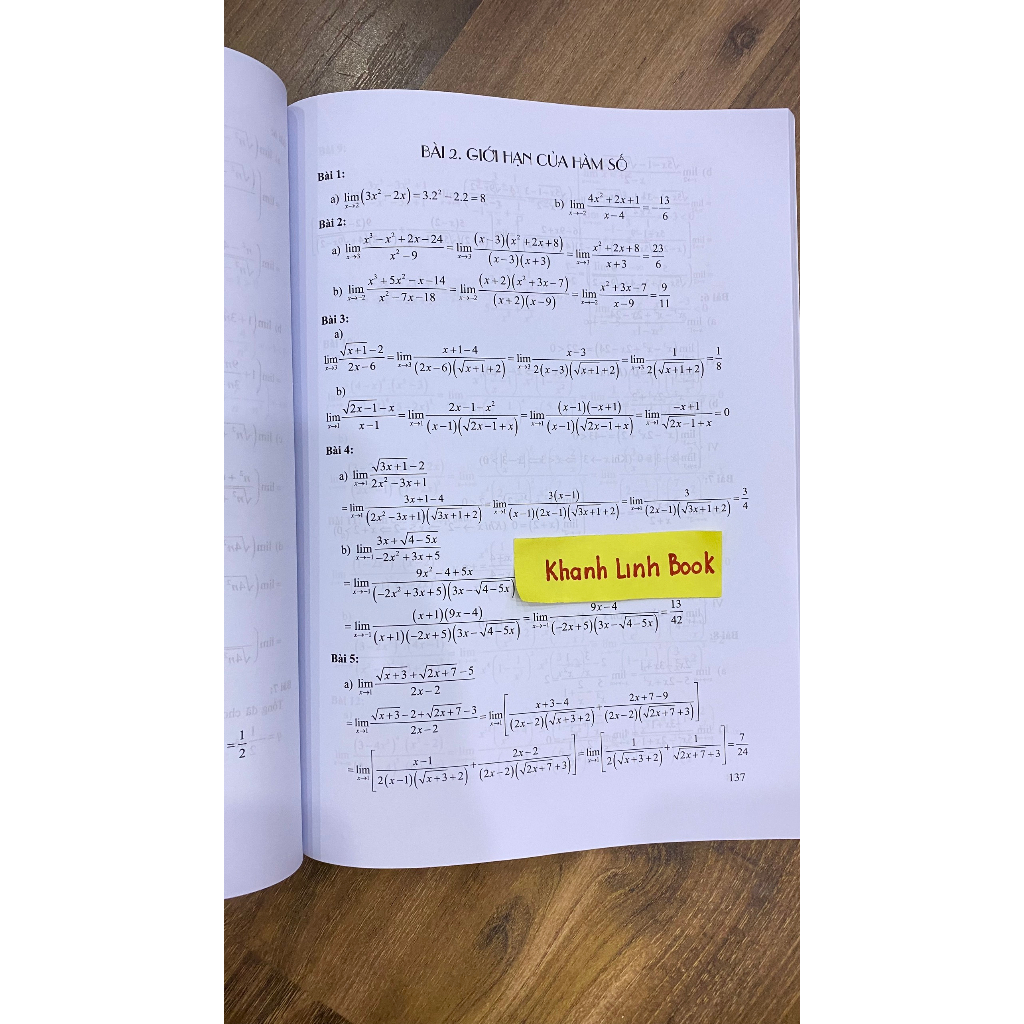 BÀI 2. GIỚI HẠN CỦA HÀM SỐ
Bài 1:
a) lim_{x→2} (3x² − 2x) = 3.2² − 2.2 = 8 b) lim_{x→−2} (4x² + 2x + 1)/(x − 4) = −13/6
Bài 2:
a) lim_{x→3} (x³ − x² + 2x − 24)/(x² − 9) = lim_{x→3} ((x − 3)(x² + 2x + 8))/((x − 3)(x + 3)) = lim_{x→3} (x² + 2x + 8)/(x + 3) = 23/6
b) lim_{x→−2} (x³ + 5x² − x − 14)/(x² − 7x − 18) = lim_{x→−2} ((x + 2)(x² + 3x − 7))/((x + 2)(x − 9)) = lim_{x→−2} (x² + 3x − 7)/(x − 9) = 9/11
Bài 3:
a)
lim_{x→3} (√(x+1) − 2)/(2x − 6) = lim_{x→3} (x + 1 − 4)/((2x − 6)(√(x+1+2))) = lim_{x→3} (x − 3)/(2(x − 3)(√(x+1+2))) = lim_{x→3} 1/(2(√(x+1+2))) = 1/8
b)
lim_{x→1} (√(2x−1) − x)/(x − 1) = lim_{x→1} (2x − 1 − x²)/((x − 1)(√(2x−1) + x)) = lim_{x→1} ((x − 1)(−x + 1))/((x − 1)(√(2x−1) + x)) = lim_{x→1} (−x + 1)/(√(2x−1) + x) = 0
Bài 4:
a) lim_{x→1} (√(3x+1) − 2)/(2x² − 3x + 1)
= lim_{x→1} (3x + 1 − 4)/((2x² − 3x + 1)(√(3x+1+2))) = lim_{x→1} (3(x − 1))/((x − 1)(2x − 1)(√(3x+1+2))) = lim_{x→1} 3/((2x − 1)(√(3x+1+2))) = 3/4
b) lim_{x→−1} (3x + √(4−5x))/(−2x² + 3x + 5)
= lim_{x→−1} (9x² − 4 + 5x)/((−2x² + 3x + 5)(3x − √(4−5x)))
Khanh Linh Book
= lim_{x→−1} ((x + 1)(9x − 4))/((x + 1)(−2x + 5)(3x − √(4−5x))) = lim_{x→−1} (9x − 4)/((−2x + 5)(3x − √(4−5x))) = 13/42
Bài 5:
a) lim_{x→1} (√(x+3) + √(2x+7) − 5)/(2x − 2)
= lim_{x→1} (√(x+3) − 2 + √(2x+7) − 3)/(2x − 2) = lim_{x→1} [(x + 3 − 4)/((2x − 2)(√(x+3+2))) + (2x + 7 − 9)/((2x − 2)(√(2x+7+3)))]
= lim_{x→1} [(x − 1)/(2(x − 1)(√(x+3+2))) + (2x − 2)/((2x − 2)(√(2x+7+3)))] = lim_{x→1} [1/(2(√(x+3+2))) + 1/(√(2x+7+3))] = 7/24
137
= 1/2